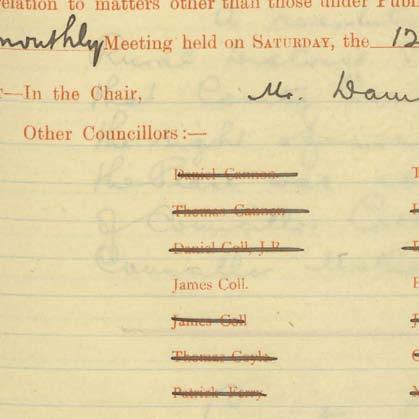 relation to matters other than those under Publ
monthly Meeting held on SATURDAY, the 12
—In the Chair, Mr. Dani
Other Councillors :—
Daniel Cannon
Thomas Cannon
Daniel Coll, J.P.
James Coll.
James Coll
Thomas Coyle
Patrick Ferry